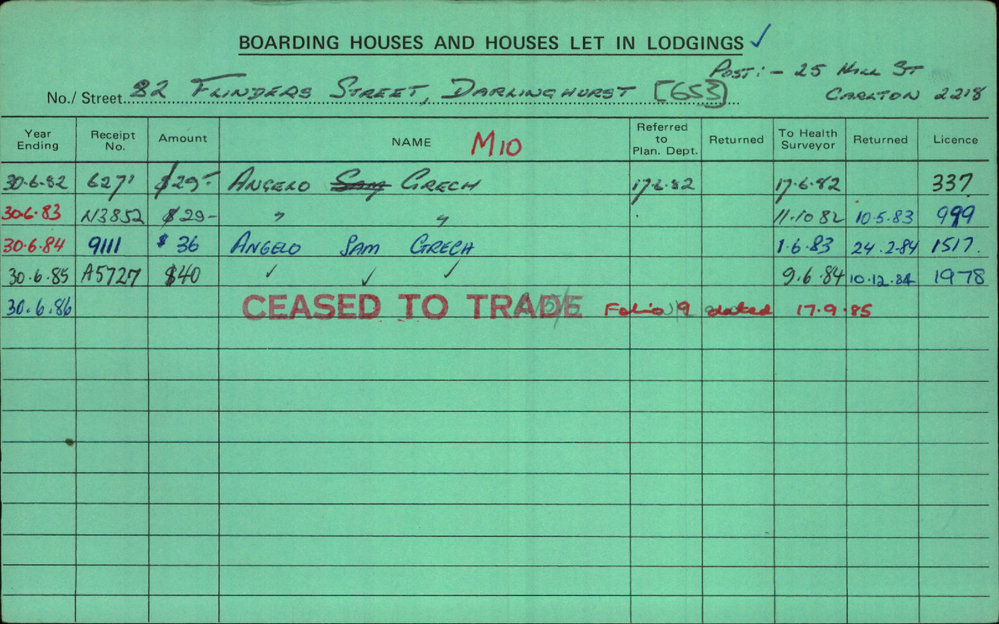 BOARDING HOUSES AND HOUSES LET IN LODGINGS ✓
POST:- 25 HILL ST
No./ Street 82 FLINDERS STREET, DARLINGHURST [653] CARLTON 2218
Year Ending Receipt No. Amount NAME M10 Referred to Plan. Dept. Returned To Health Surveyor Returned Licence
30.6.82 6271 $29- ANGELO SAM GRECH 17.6.82 17.6.82 337
30.6.83 N3852 $29- " " 11.10.82 10.5.83 999
30.6.84 9111 $36 ANGELO SAM GRECH 1.6.83 24.2.84 1517.
30.6.85 A5727 $40 ✓ ✓ ✓ 9.6.84 10.12.84 1978
30.6.86 CEASED TO TRADE Folio 9 dated 17.9.85